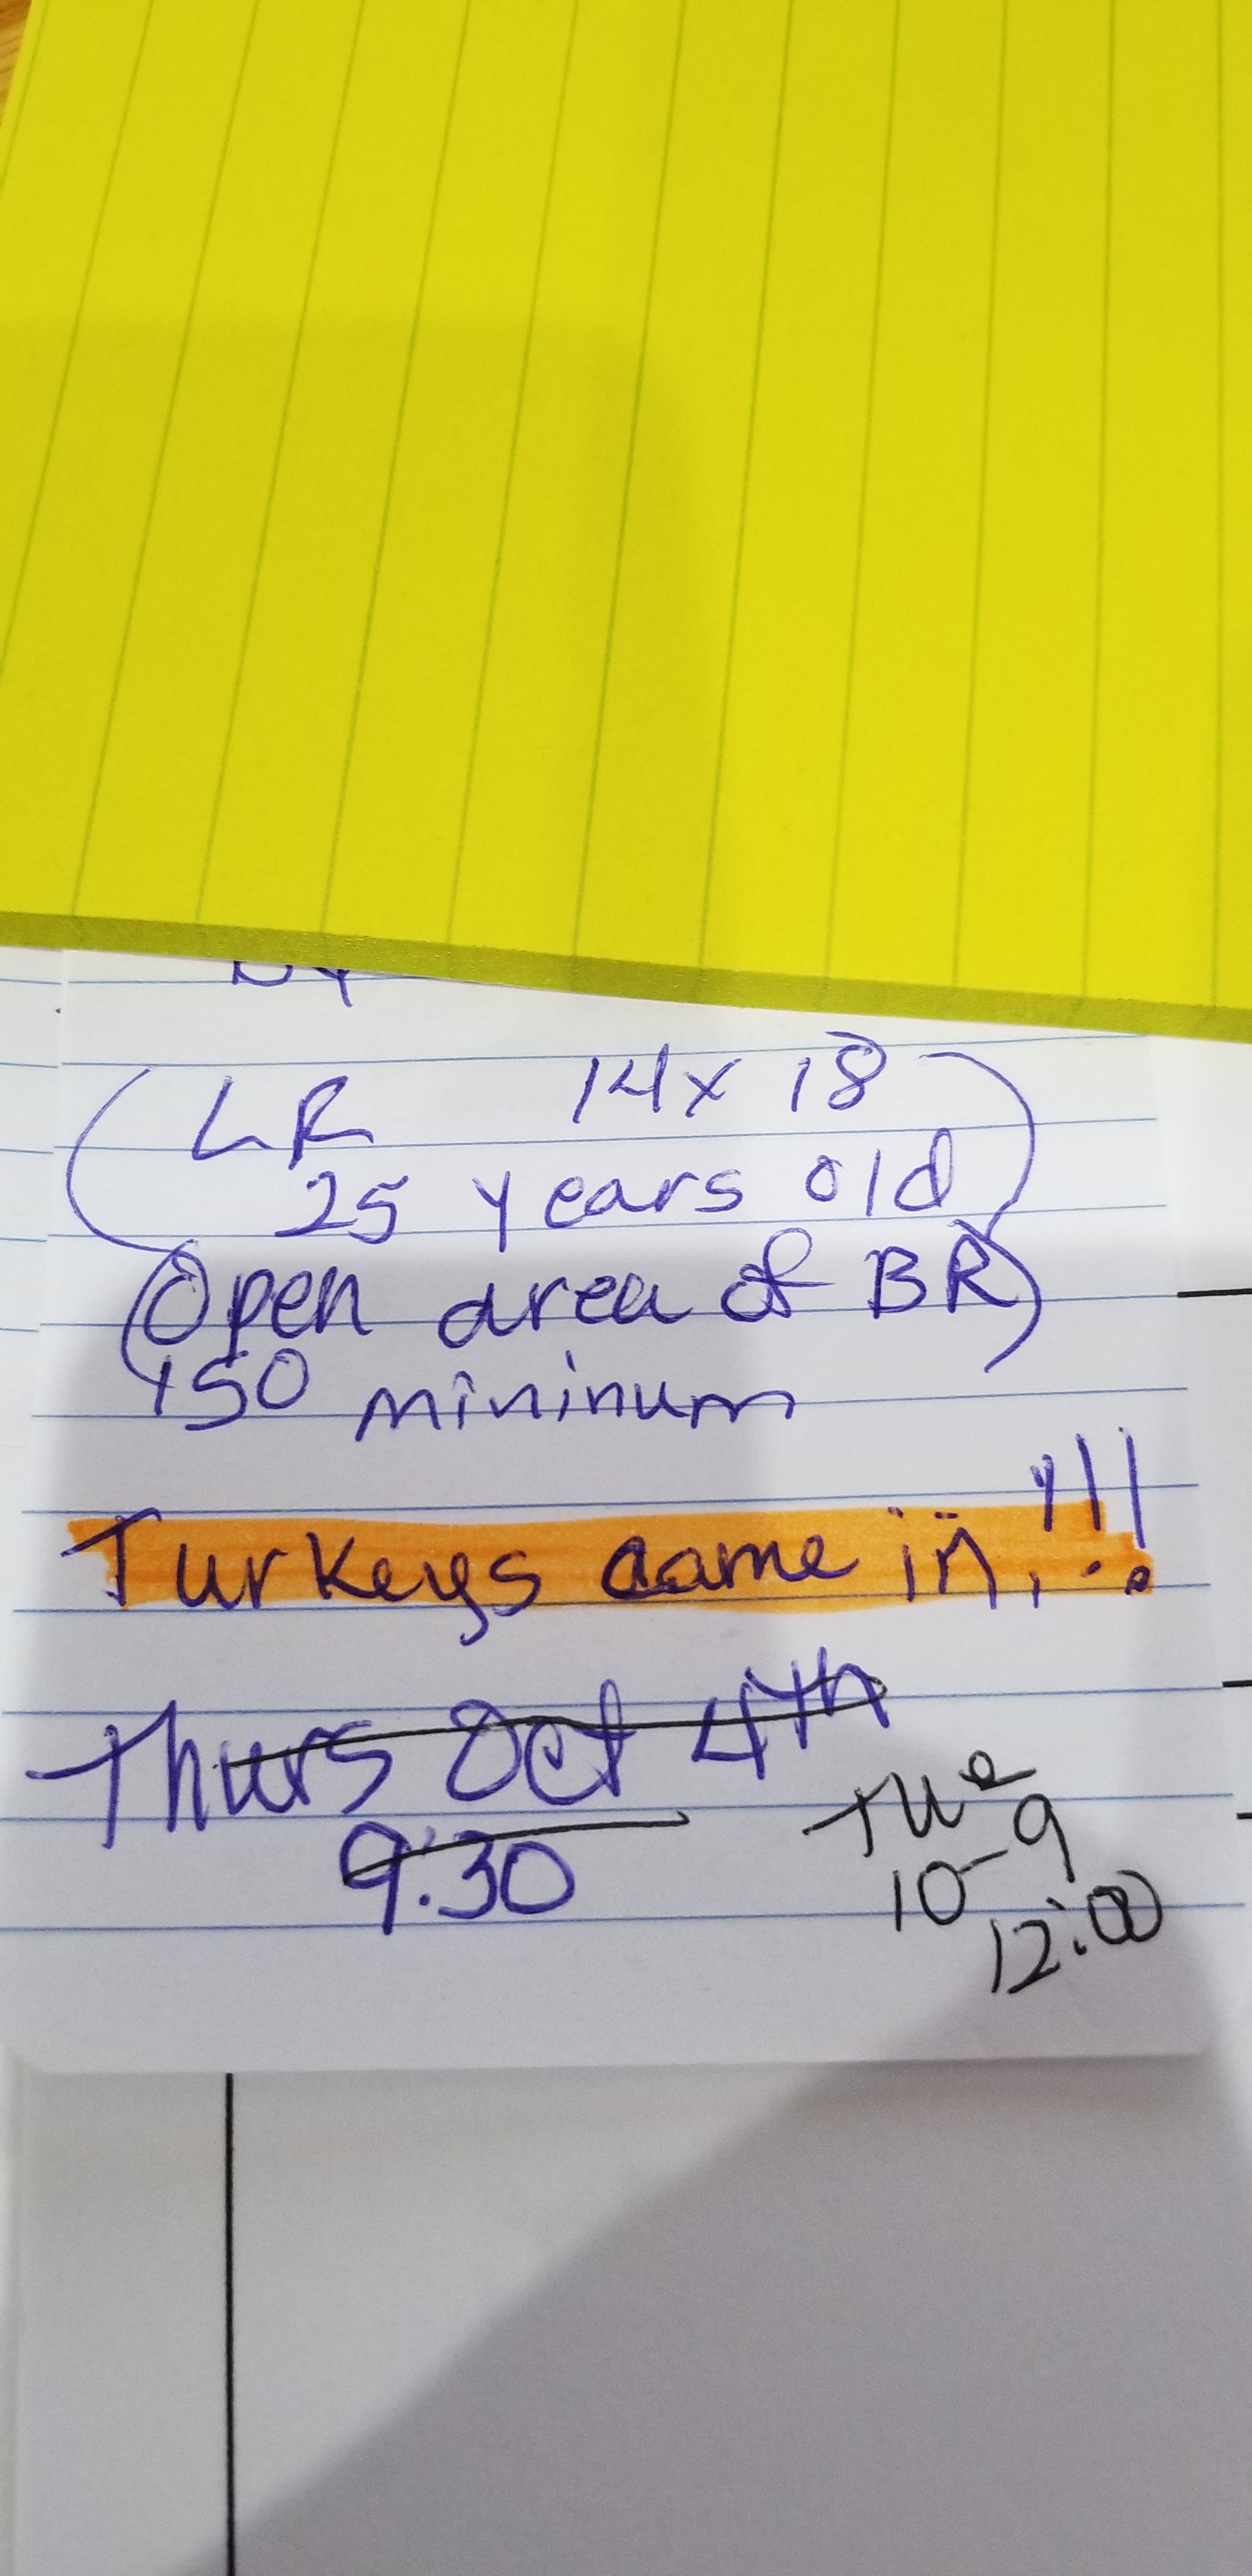 LR 14x18
25 years old
Open area of BR
150 mininum
Turkeys came in!!!
Thurs Oct 4th
9:30
Tue
10-9
12:00